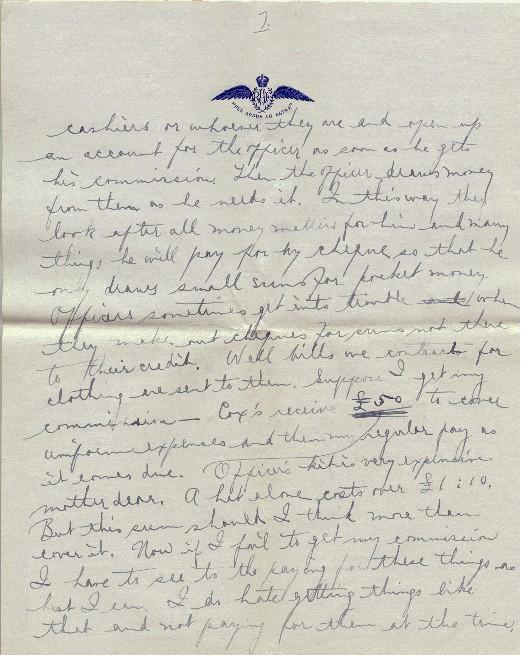 7.
RFC
"PER ARDUA AD ASTRA"
cashiers or whoever they are and open up
an account for the officer as soon as he gets
his commission. Then the officer draws money
from them as he needs it. In this way they
look after all money matters for him and many
things he will pay for by cheque so that he
only draws small sums for pocket money.
Officers sometimes get into trouble and when
they make out cheques for sums not there
to their credit. Well bills we contract for
clothing are sent to them. Suppose I get my
commission — Cox's receive £50 to cover
uniform expenses and then my regular pay as
it comes due. Officer's kit is very expensive
mother dear. A hat alone costs over £1:10.
But this sum should I think more than
cover it. Now if I fail to get my commission
I have to see to the paying for these things as
best I can. I do hate getting things like
that and not paying for them at the time.